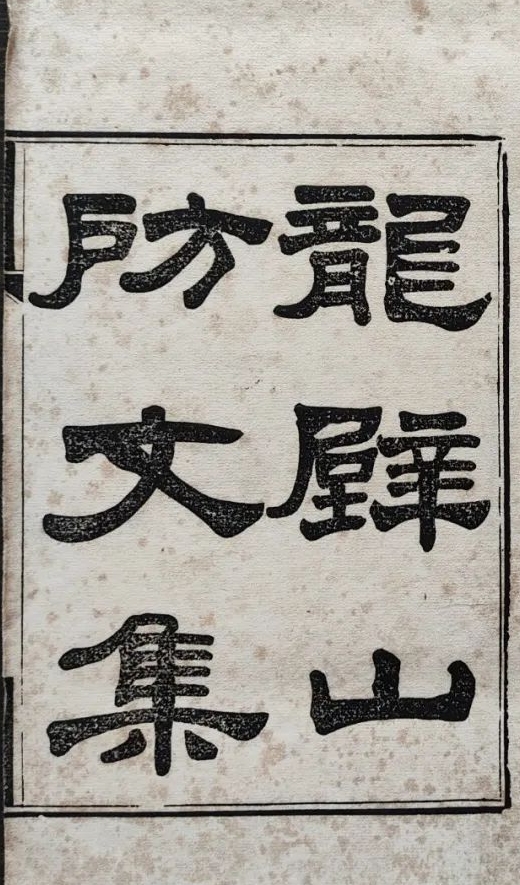 龍壁山
房文集